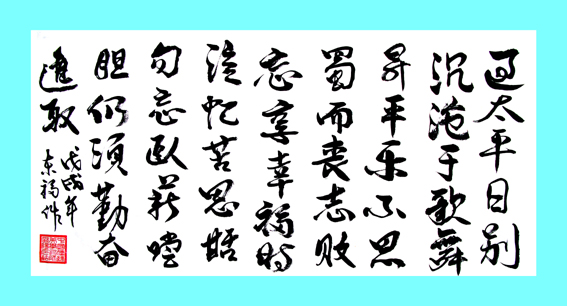 过太平日别
沉于歌舞
昇平乐不思
蜀而丧志败
忘享幸福时
忆苦思甜
勿忘卧薪嚐
胆仍须勤奋
進取
戊戌年
东福作